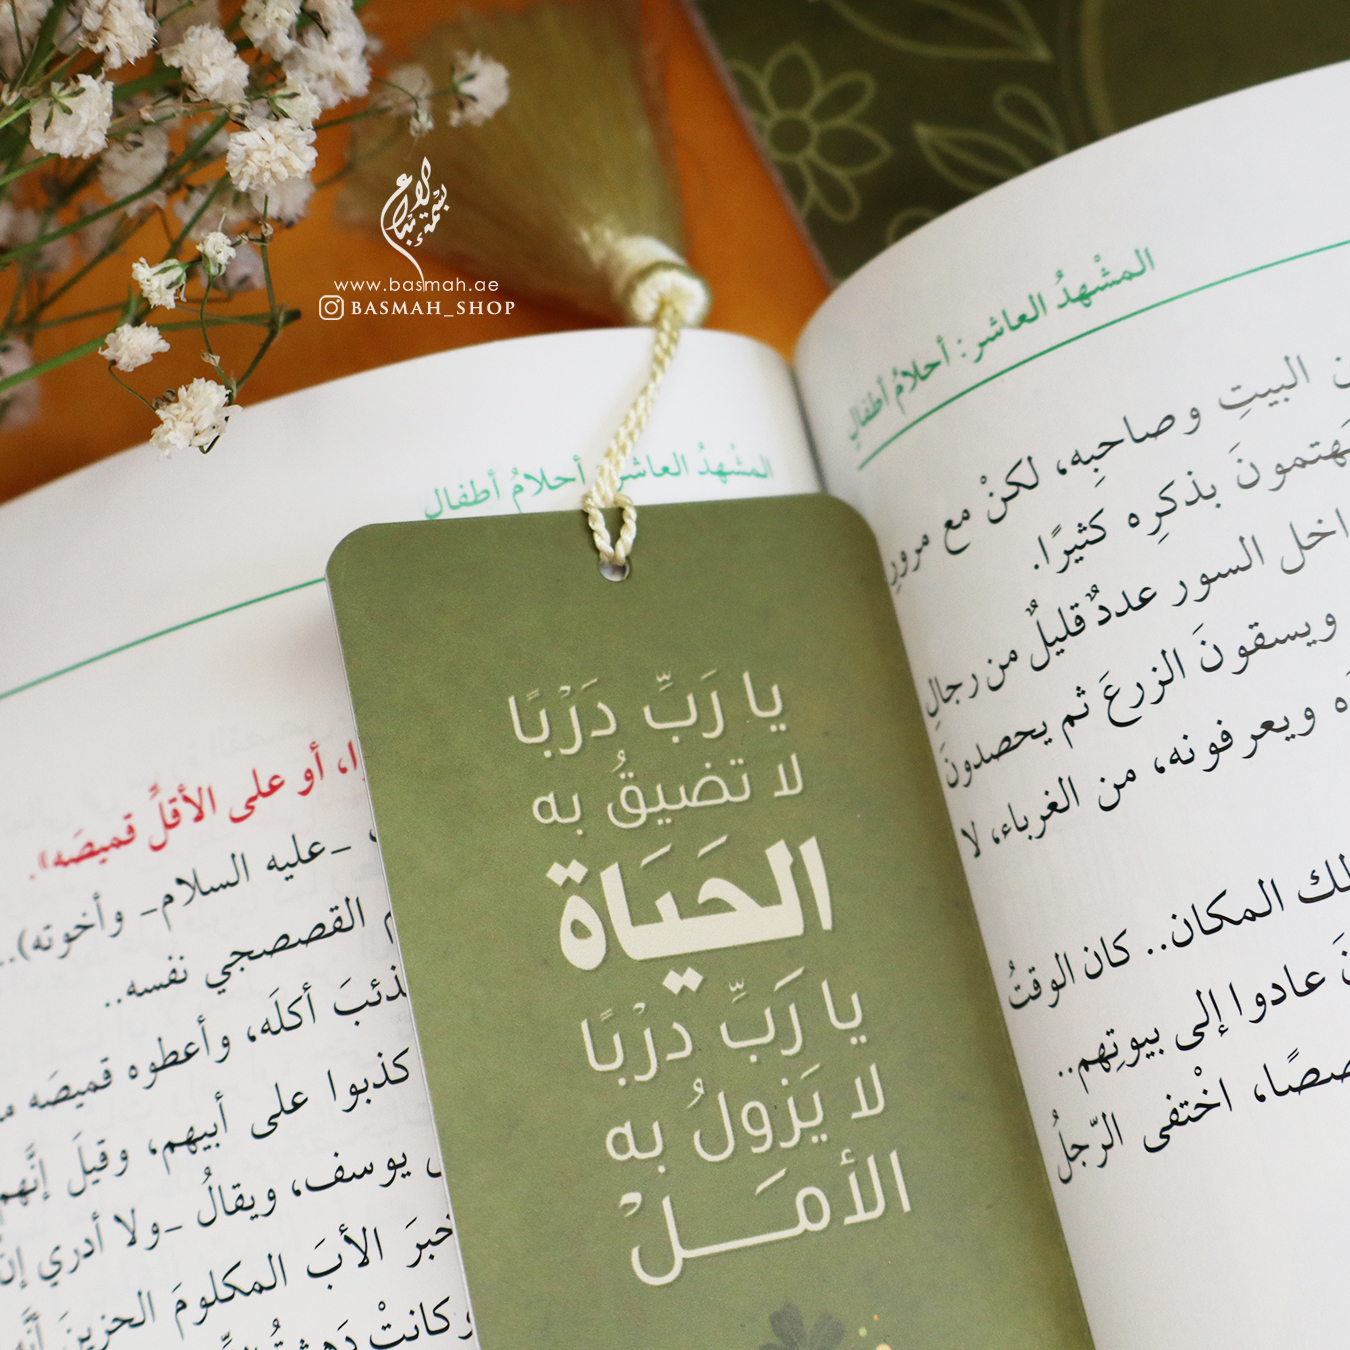 بسمة الإبداع
www.basmah.ae
BASMAH_SHOP
المشْهدُ العاشر: أحلامُ أطفالٍ
البيتِ وصاحبِه، لكنْ مع مرورِ
بذكرِه كثيرًا.
السور عددٌ قليلٌ من رجالِ
ويسقونَ الزرعَ ثم يحصدونَ
ويعرفونه، من الغرباء، لا
المكان.. كان الوقتُ
عادوا إلى بيوتِهم..
اخْتفى الرّجلُ
المشْهدُ العاشر: أحلامُ أطفالٍ
أو على الأقلِّ قميصَه».
_عليه السلام_ وأخوته)..
القصصجي نفسه..
أكلَه، وأعطوه قميصَه
كذبوا على أبيهم، وقيلَ إنَّهم
يوسف، ويقالُ _ولا أدري
الأبَ المكلومَ الحزينَ أنَّه
وكانتْ
يا رَبِّ دَرْبًا
لا تضيقُ به
الحَيَاة
يا رَبِّ درْبًا
لا يَزولُ به
الأمَـــلْ